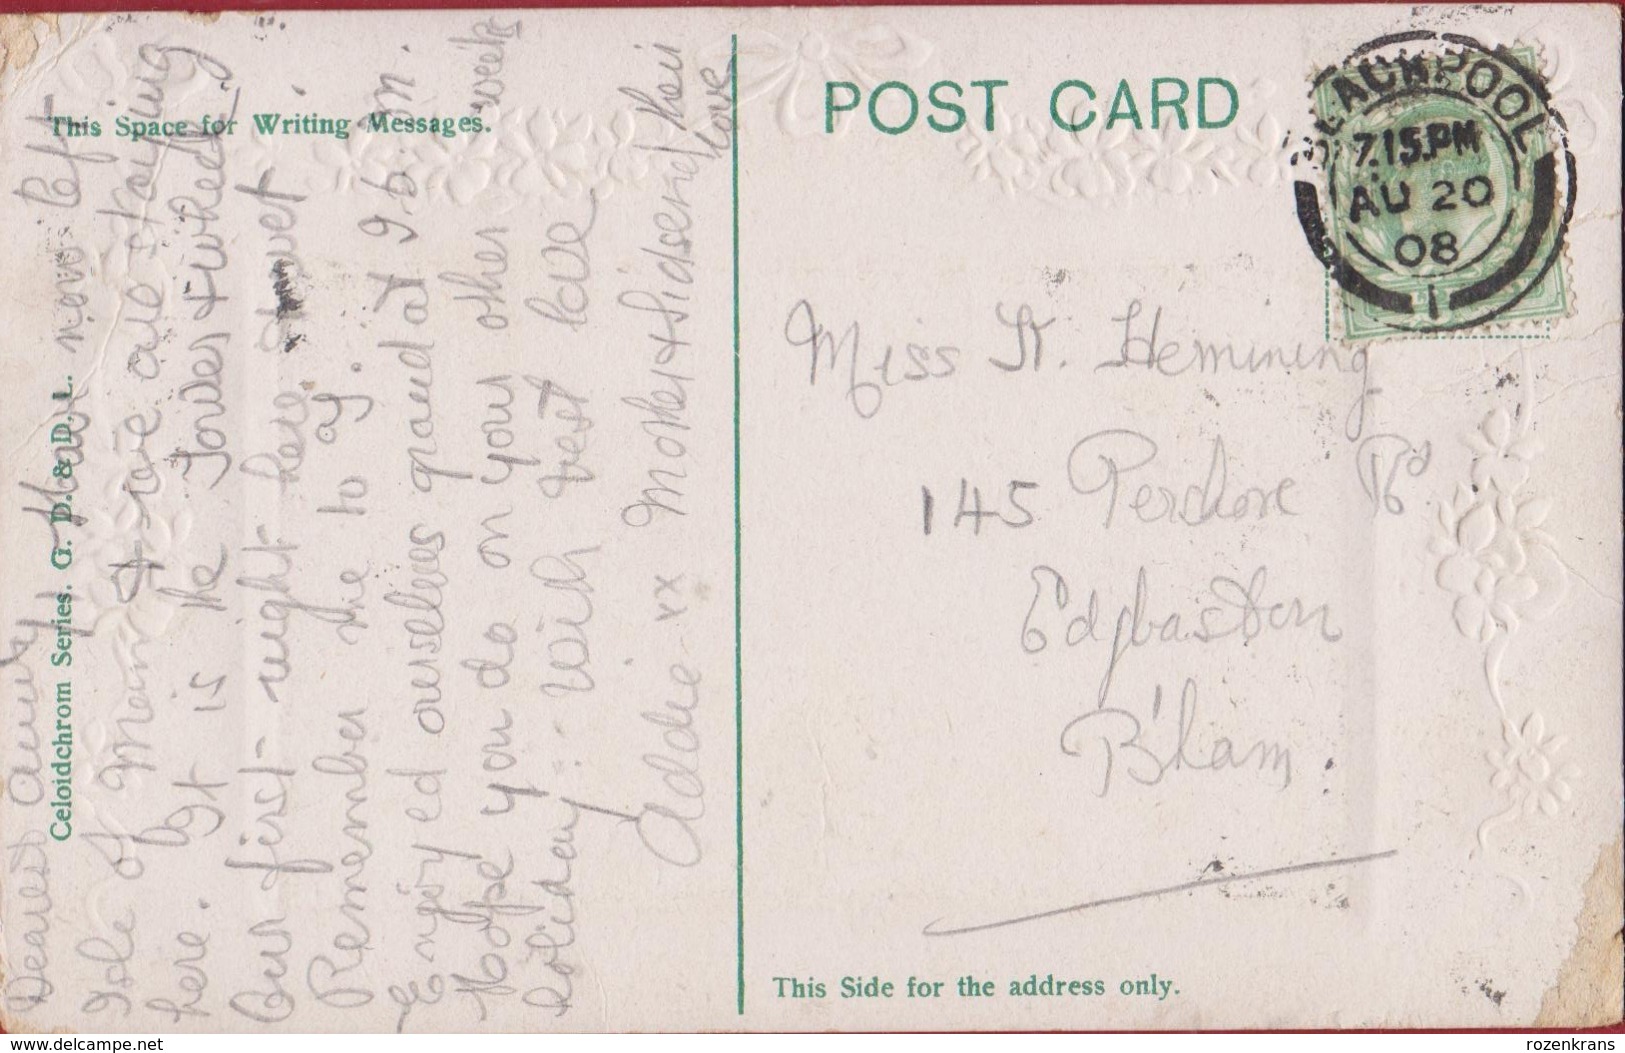 POST CARD
This Space for Writing Messages.
Celoidchrom Series. G. D. & D. L.
BLACKPOOL
7.15.PM
AU 20
08
1
Dearest Aunty Have now left
Isle of Man & are staying
here. It is the Tower & Wheel
Our first night here sweet
Remember me to ay.
Enjoyed ourselves grand at I.o.M.
Hope you do on your other week
holiday. With best love
Addie xx Mother & Sid send their
love
Miss N. Hemining
145 Pershore Rd
Edgbaston
B'ham.
This Side for the address only.
delcampe.net
rozenkrans